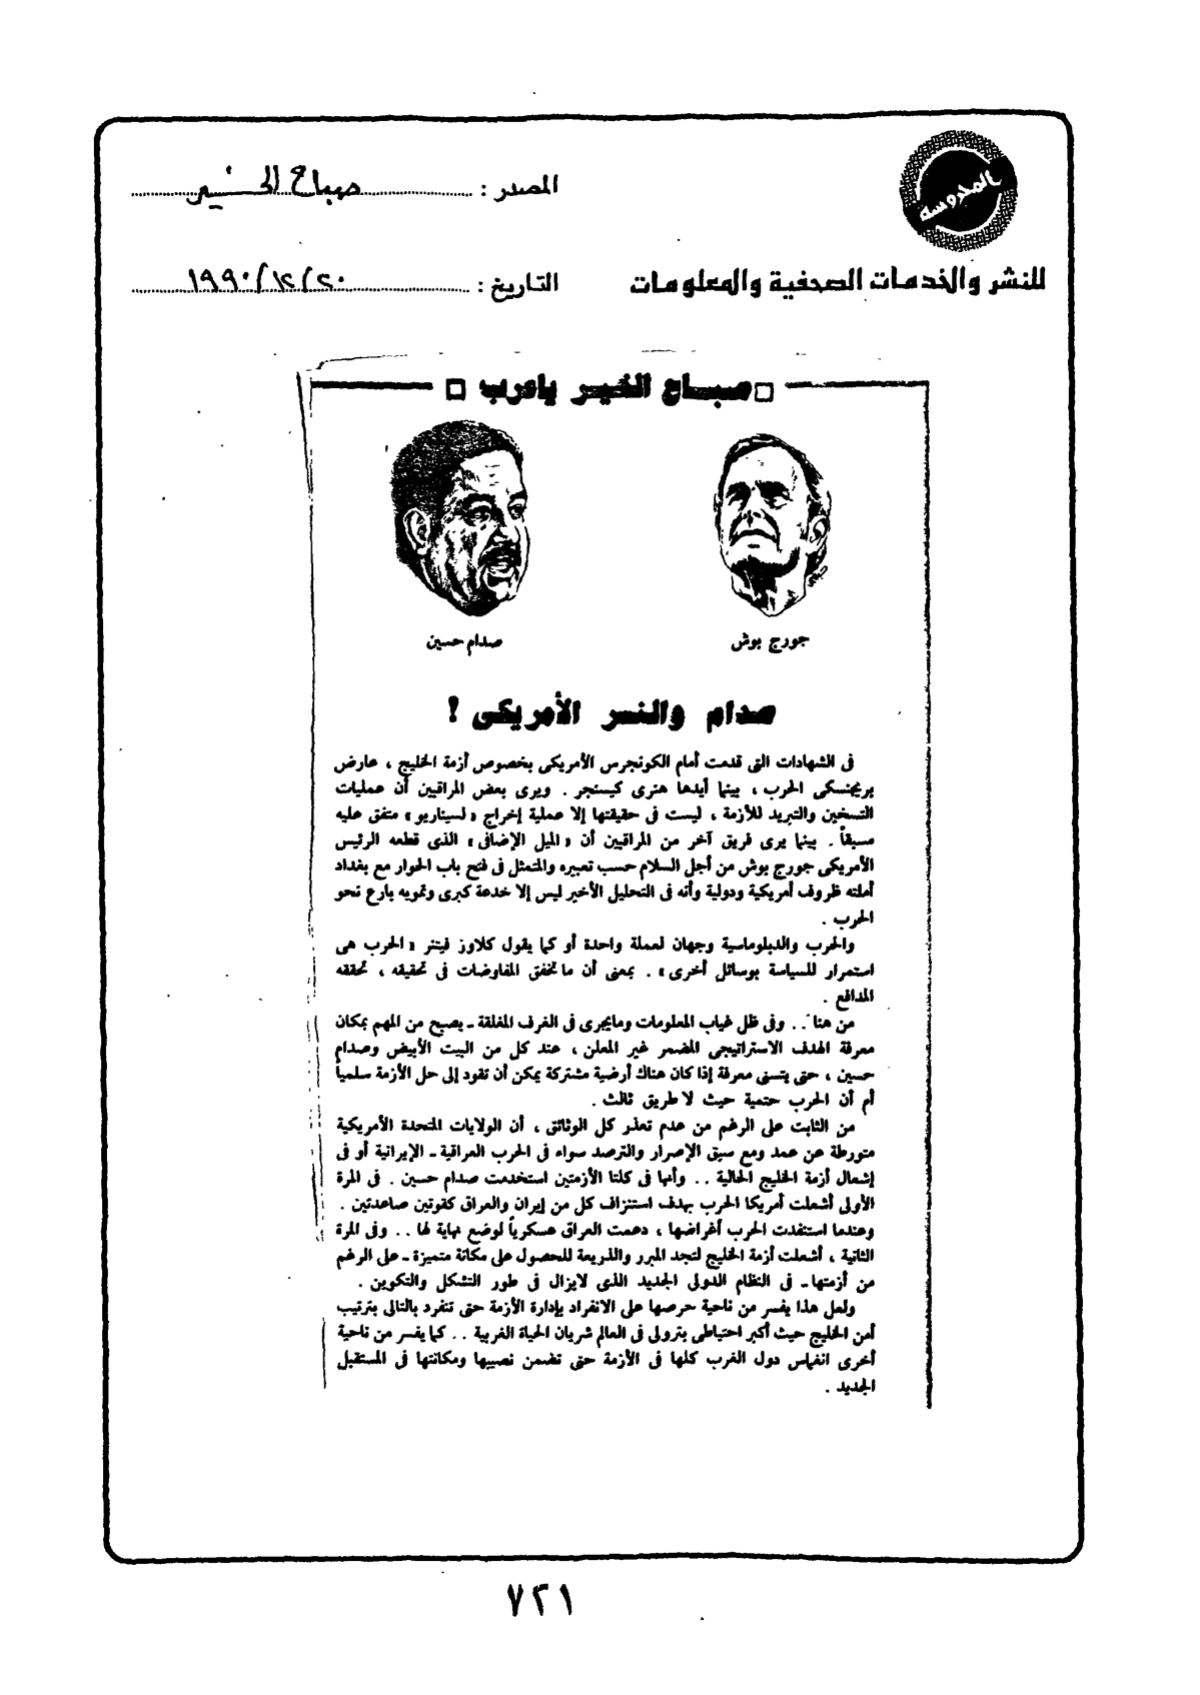 المحروسة
للنشر والخدمات الصحفية والمعلومات
المصدر : صباح الخير
التاريخ : ٢٠/١٢/١٩٩٠
صباح الخير ياعرب
جورج بوش
صدام حسين
صدام والنسر الأمريكى !
فى الشهادات التى قدمت أمام الكونجرس الأمريكى بخصوص أزمة الخليج ، عارض
بريجنسكى الحرب ، بينما أيدها هنرى كيسنجر . ويرى بعض المراقبين أن عمليات
التسخين والتبريد للأزمة ، ليست فى حقيقتها إلا عملية إخراج « لسيناريو » متفق عليه
مسبقاً . بينما يرى فريق آخر من المراقبين أن « الميل الإضافى » الذى قطعه الرئيس
الأمريكى جورج بوش من أجل السلام حسب تعبيره والمتمثل فى فتح باب الحوار مع بغداد
أملته ظروف أمريكية ودولية وأنه فى التحليل الأخير ليس إلا خدعة كبرى وتمويه بارع نحو
الحرب .
والحرب والدبلوماسية وجهان لعملة واحدة أو كما يقول كلاوز فيتنر « الحرب هى
استمرار للسياسة بوسائل أخرى » . بمعنى أن ماتخفق المفاوضات فى تحقيقه ، تحققه
المدافع .
من هنا .. وفى ظل غياب المعلومات ومايجرى فى الغرف المغلقة ـ يصبح من المهم بمكان
معرفة الهدف الاستراتيجى المضمر غير المعلن ، عند كل من البيت الأبيض وصدام
حسين ، حتى يتسنى معرفة إذا كان هناك أرضية مشتركة يمكن أن تقود إلى حل الأزمة سلمياً
أم أن الحرب حتمية حيث لا طريق ثالث .
من الثابت على الرغم من عدم تعذر كل الوثائق ، أن الولايات المتحدة الأمريكية
متورطة عن عمد ومع سبق الإصرار والترصد سواء فى الحرب العراقية ـ الإيرانية أو فى
إشعال أزمة الخليج الحالية .. وأنها فى كلتا الأزمتين استخدمت صدام حسين . فى المرة
الأولى أشعلت أمريكا الحرب بهدف استنزاف كل من إيران والعراق كقوتين صاعدتين .
وعندما استنفدت الحرب أغراضها ، دعمت العراق عسكرياً لوضع نهاية لها .. وفى المرة
الثانية ، أشعلت أزمة الخليج لتجد المبرر والذريعة للحصول على مكانة متميزة ـ على الرغم
من أزمتها ـ فى النظام الدولى الجديد الذى لايزال فى طور التشكل والتكوين .
ولعل هذا يفسر من ناحية حرصها على الانفراد بإدارة الأزمة حتى تنفرد بالتالى بترتيب
أمن الخليج حيث أكبر احتياطى بترولى فى العالم شريان الحياة الغربية .. كما يفسر من ناحية
أخرى انغماس دول الغرب كلها فى الأزمة حتى تضمن نصيبها ومكانتها فى المستقبل
الجديد .
٧٢١